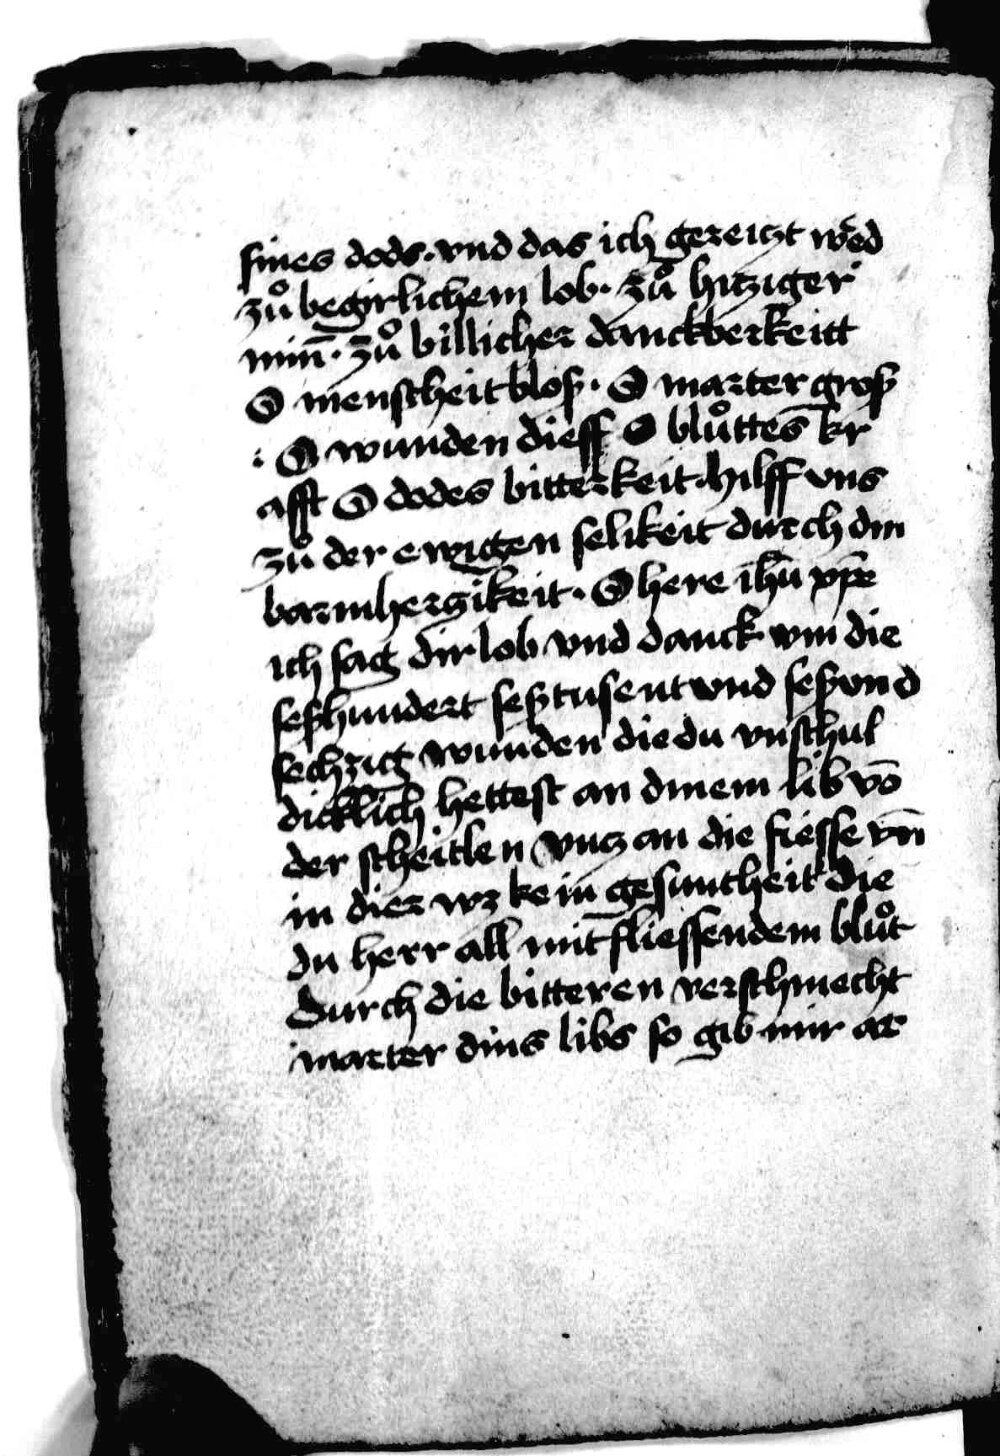 sines dods · vnd das ich gereitzt werd
zů begirlichem lob · zů hitziger
min̄ · zů billicher danckberkeitt
O menscheit blosß · O marter grosß
: O wunden dieff O blůttes̄ kr
afft O dodes bitterkeit · hilff vns
zů der ewigen selikeit durch din
barmhertzikeit · O here ih̄u xp̄e
ich sag dir lob vnd danck vm die
seßhundert seßtusent vnd seß vnd
sechzig wunden die du vnschul
dicklich hettest an dinem lib vō
der scheitlen vntz an die fiesse vn̄
in dier wz kein gesuntheit die
du herr all mit fliessendem blůt
durch die bitteren verschmecht
marter dins libs so gib mir ar